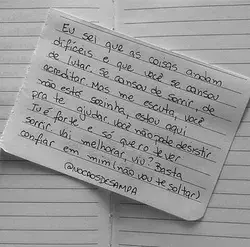 Eu sei que as coisas andam
difíceis e que você se cansou
de lutar. Se cansou de sorrir, de
acreditar. Mas me escuta, você
não está sozinha, estou aqui
pra te ajudar. Você não pode desistir
Tu é forte e só quero te ver
sorrir. Vai melhorar, viu? Basta
confiar em mim (não vou te soltar)
@VOCAOSDESAMPA